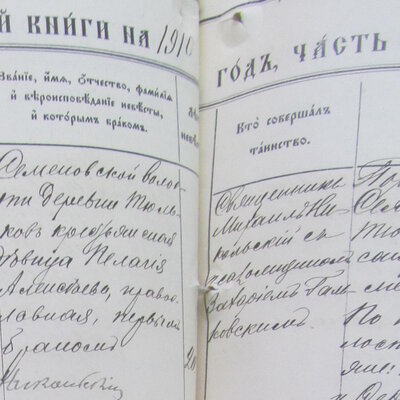 й книги на 1910
годъ, часть
Званіе, имя, отчество, фамилія
и вѣроисповѣданіе невѣсты,
и которымъ бракомъ.
Кто совершалъ
таинство.
Семеновской воло-
сти деревни Тюль-
ковъ крестьянская
дѣвица Пелагія
Алексѣева, право-
славная, первымъ
бракомъ
20
Священникъ
Михаилъ Ни-
кольскій съ
псаломщикомъ
Захаріемъ Гам-
ровскимъ
По